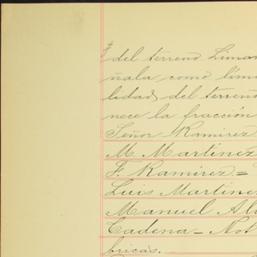 del terreno Lima
ñala como lími
lidad, del terreno
nece la fracción
Señor Ramirez
M. Martinez
F. Ramirez=
Luis Martine
Manuel Al
Cadena= Not
bricas.